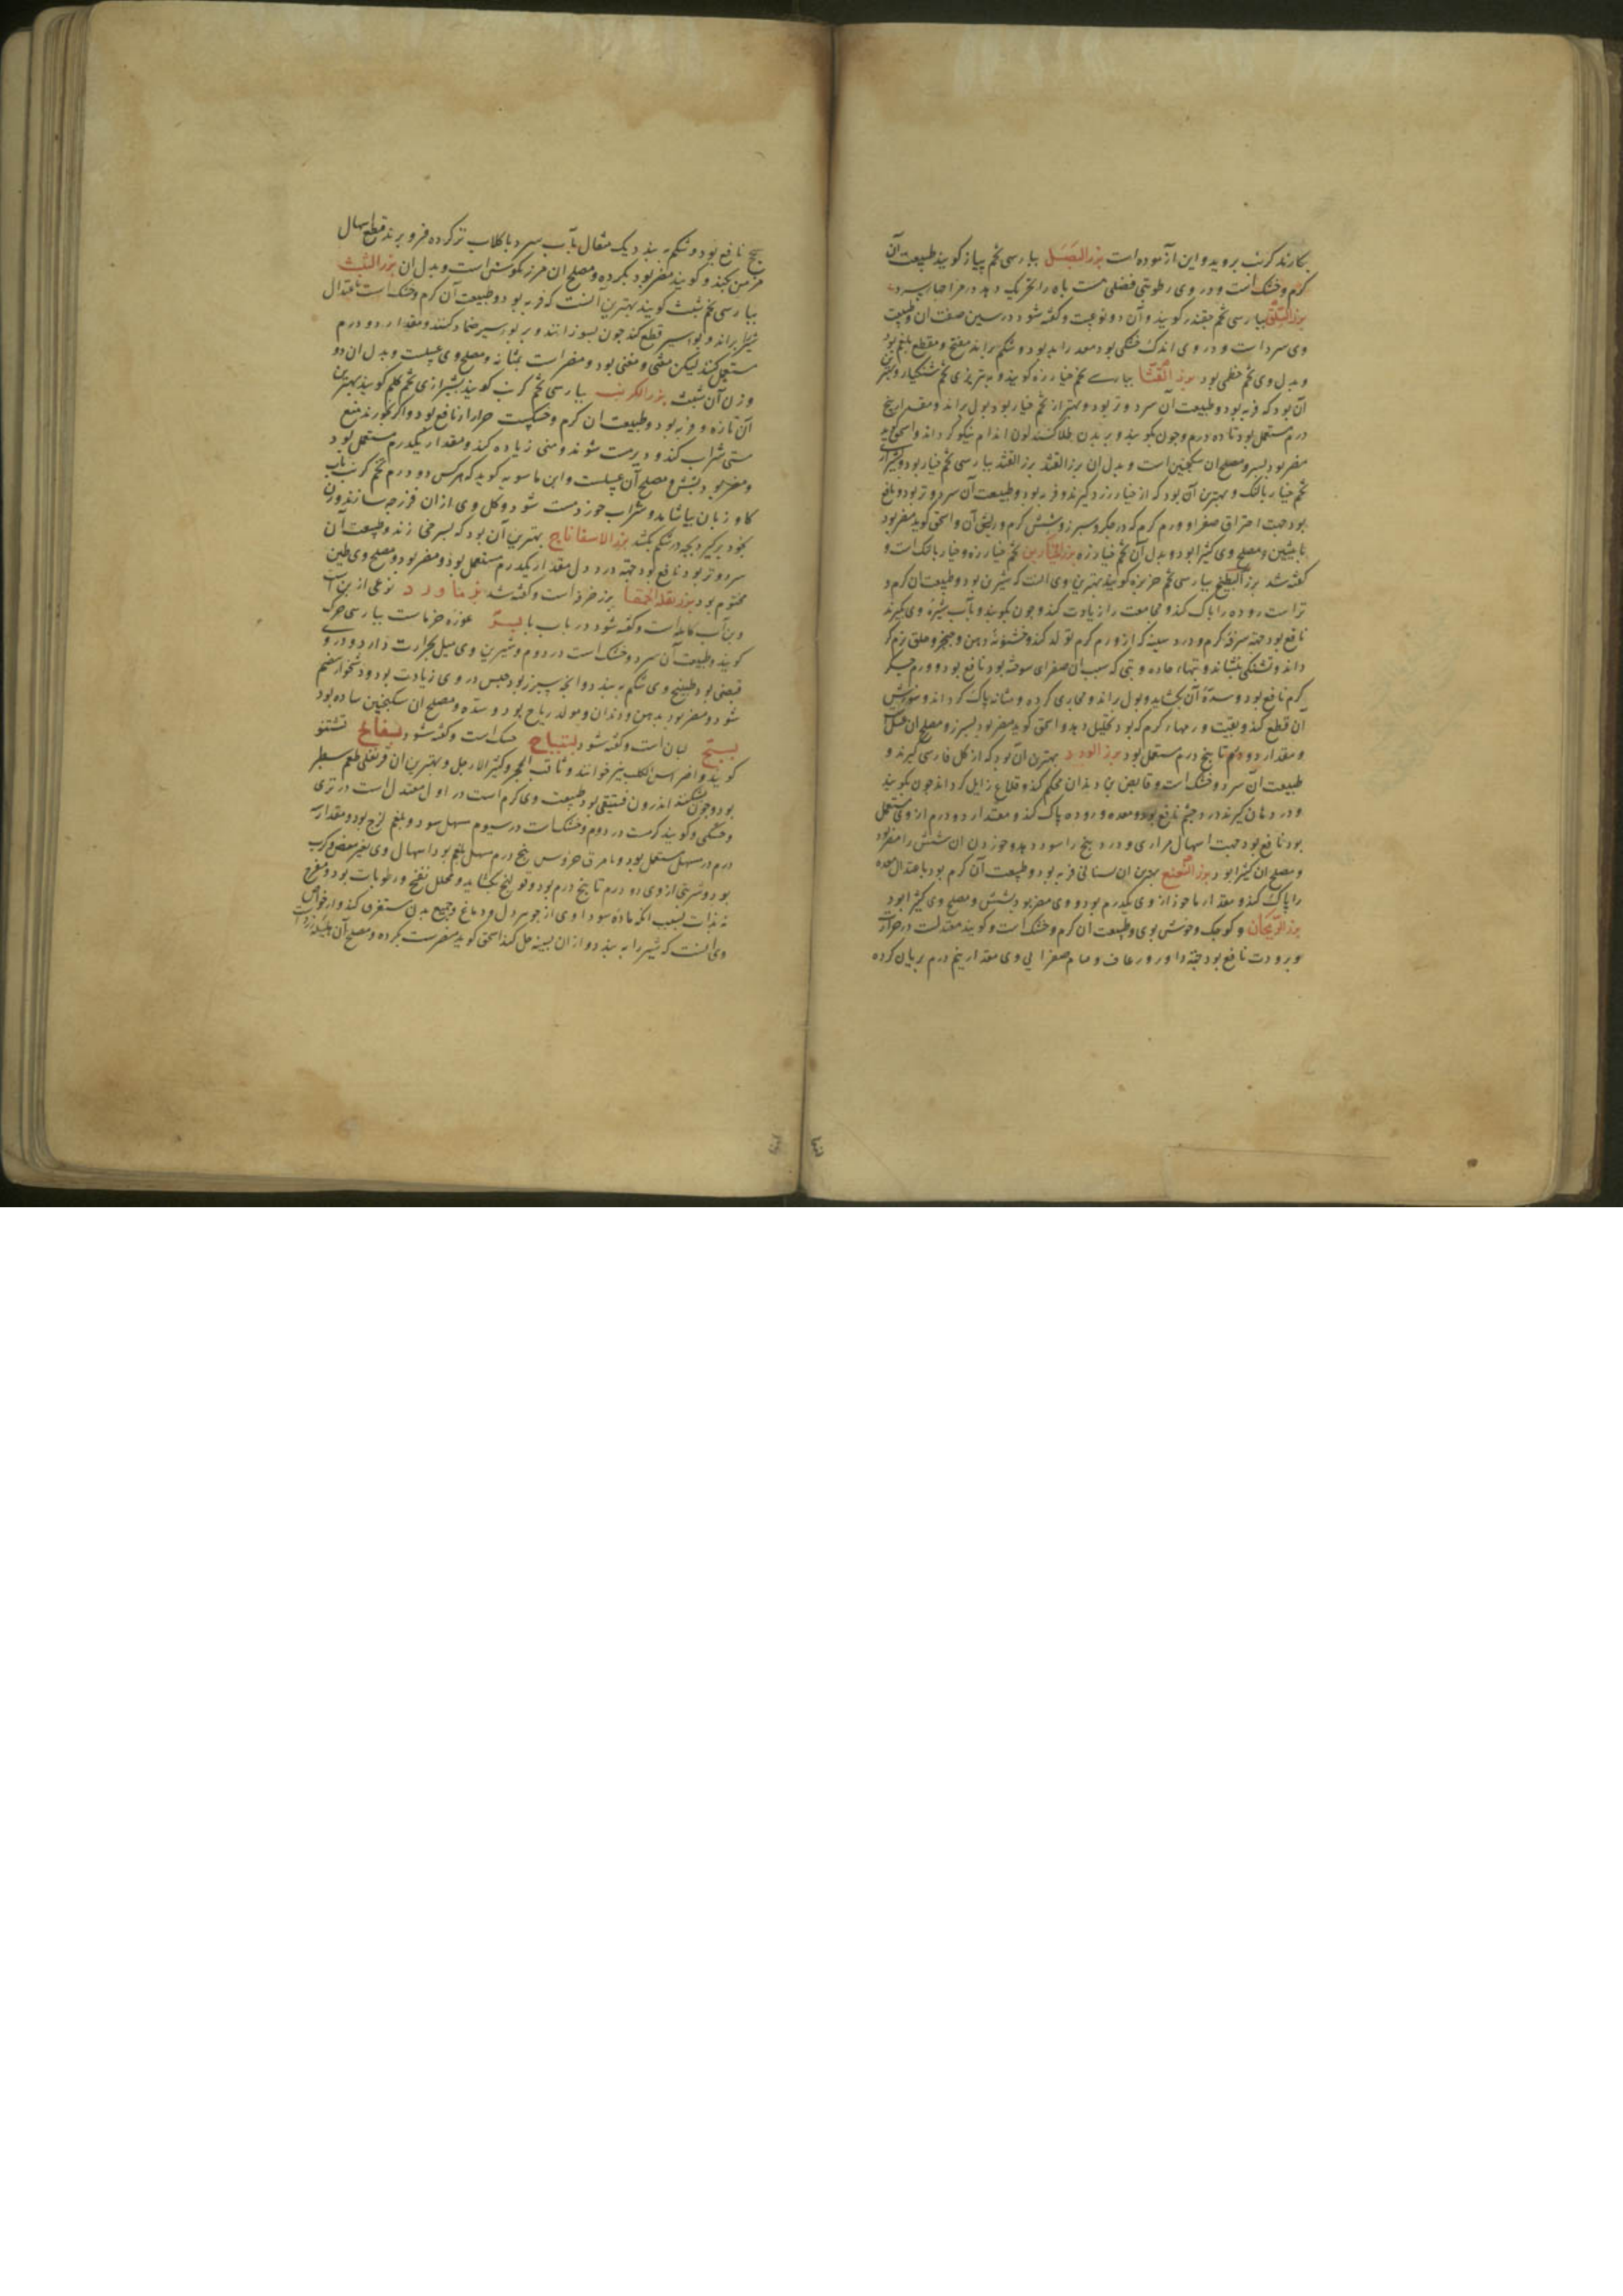 بکارند کرنب بروید و این آزموده است بزر البصل بپارسی تخم پیاز کویند طبیعت آن
کرم و خشک است و در وی رطوبتی فضلی هست باه را تحریک دهد در مزاجهاء سرد
بزر السلق بپارسی تخم چقندر کویند و آن دو نوعست و کفته شود در سین صفت آن و طبیعت
وی سرد است و در وی اندک خشکی بود معده را بد بود و شکم براند مفتح و مقطع بلغم بود
و بدل وی تخم خطمی بود بزر القثا بپارسی تخم خیارزه کویند و به تبریزی تخم شنکیار و بهترین
آن بود که فربه بود و طبیعت آن سرد و تر بود و بهتر از تخم خیار بود بول براند و مقدار پنج
درم مستعمل بود تا ده درم و چون بکوبند و بر بدن طلا کنند لون اندام نیکو کرداند و اسحق کوید
مضر بود بسپرز و مصلح آن سکنجبین است و بدل آن بزر القثد بزر القثد بپارسی تخم خیار بود و بشیرازی
تخم خیار بالنک و بهترین آن بود که از خیار زرد کیرند و فربه بود و طبیعت آن سرد و تر بود و نافع
بود جهت احتراق صفرا و ورم کرم که در جکر و سپرز و شش کرم و ریش آن و اسحق کوید مضر بود
و مصلح وی کثیرا بود و بدل آن تخم خیارزه بزر الخیارین تخم خیارزه و خیار بالنک است و
کفته شد بزر البطیخ بپارسی تخم خربزه کویند بهترین وی آنست که شیرین بود و طبیعت آن کرم و
تر است روده را پاک کند و مجامعت را زیادت کند و چون بکوبند و بآب شیره وی کیرند
نافع بود جهة سرفه کرم و درد سینه که از ورم کرم تولد کند و خشونة دهن و حنجره و حلق نرم کر
داند و تشنکی بنشاند و تبهاء حاده و تبی که سبب آن صفرای سوخته بود نافع بود و ورم جکر
کرم نافع بود و سده آن بکشاید و بول براند و مجاری کرده و مثانه پاک کرداند و سوزش
آن قطع کند و بقیت ورمهاء کرم که بود تحلیل دهد و اسحق کوید مضر بود بسپرز و مصلح آن عسل است
و مقدار دو درم تا پنج درم مستعمل بود بزر الورد بهترین آن بود که از کل فارسی کیرند و
طبیعت آن سرد و خشک است و قابض بن دندان محکم کند و قلاع زایل کرداند چون بکوبند
و در دهان کیرند درد چشم نافع بود و معده و روده پاک کند و مقدار دو درم از وی مستعمل
بود نافع بود جهت اسهال مراری و درد پنج را سود دهد و خوردن آن شش را مضر بود
و مصلح آن کثیرا بود بزر النعنع بهترین آن بستانی فربه بود و طبیعت آن کرم بود باعتدال معده
را پاک کند و مقدار ماخوذ از وی یکدرم بود و وی مضر بود بشش و مصلح وی کثیرا بود
بزر الریحان و کوچک و خوش بوی و طبیعت آن کرم و خشک است و کویند معتدلست در حرارت
و برودت نافع بود جهة دوار و رعاف و صفرایی وی مقدار پنج درم بریان کرده
نافع بود و شکم به بندد یک مثقال بآب سرد یا کلاب تر کرده فرو برند قطع اسهال
مزمن بکند و کویند مضر بود بکرده و مصلح آن مرزنکوش است و بدل آن بزر الشبث
بپارسی تخم شبث کویند بهترین آنست که فربه بود و طبیعت آن کرم و خشک است باعتدال
شیر براند و بواسیر قطع کند چون بسوزانند و بر بواسیر ضماد کنند و مقدار دو درم
مستعمل کنند لیکن مغثی و مقیی بود و مضر است بمثانه و مصلح وی عسلست و بدل آن دو
وزن آن شبث بزر الکرنب بپارسی تخم کرنب کویند بشیرازی تخم کلم کویند بهترین
آن تازه و فربه بود و طبیعت آن کرم و خشکست نافع بود و اکر بخورند منع
مستی شراب کند و دیر مست شوند و منی زیاده کند و مقدار یکدرم مستعمل بود
و مضر بود بشش و مصلح آن عسلست و ابن ماسویه کوید که هر کس دو درم تخم کرنب با آب
کاو زبان بیاشامد و شراب خورد مست شود و کل وی از آن فرزجه سازند و زن
بخود برکیرد بچه در شکم بکشد بزر الاسفاناخ بهترین آن بود که بسرخی زند و طبیعت آن
سرد و تر بود نافع بود جهة درد دل مقدار یکدرم مستعمل بود و مضر بود و مصلح وی طین
مختوم بود بزر بقلة الحمقا بزر خرفه است و کفته شد بزماورد نوعی از بن است
و کفته شود در باب با بسر غوزه خرماست بپارسی خرک
کویند و طبیعت آن سرد و خشک است در دوم و شیرین وی میل بحرارت دارد و در وی
قبضی بود طبیخ وی شکم به بندد و آنچه سبزتر بود حبس در وی زیادت بود و دشخوار هضم
شود و مضر بود بدهن و دندان و مولد ریاح بود و سده و مصلح آن سکنجبین ساده بود
بستج لبان است و کفته شود بستیاج حسک است و کفته شود بسفایج تشتفو
کویند و اضراس الکلب نیز خوانند و ثاقب الحجر و کثیر الارجل و بهترین آن قرنفلی طعم سطبر
بود و چون بشکنند اندرون فستقی بود طبیعت وی کرم است در اول معتدل است در تری
و خشکی و کویند کرمست در دوم و خشکست در سیوم مسهل سودا و بلغم لزج بود و مقدار سه
درم در مسهل مستعمل بود و با مرق خروس پنج درم مسهل بلغم بود اسهال وی بغیر مغص و کرب
بود و شربتی از وی دو درم تا پنج درم بود و قولنج بکشاید و محلل نفخ و رطوبات بود و مفرح
نه بذات بسبب آنکه ماده سوداوی از جوهر دل و دماغ و جمیع بدن مستفرغ کند و از خواص
وی آنست که شیر را به بندد و از آن بسینه حل کند اسحق کوید مضرست بکرده و مصلح آن هلیله زرد است